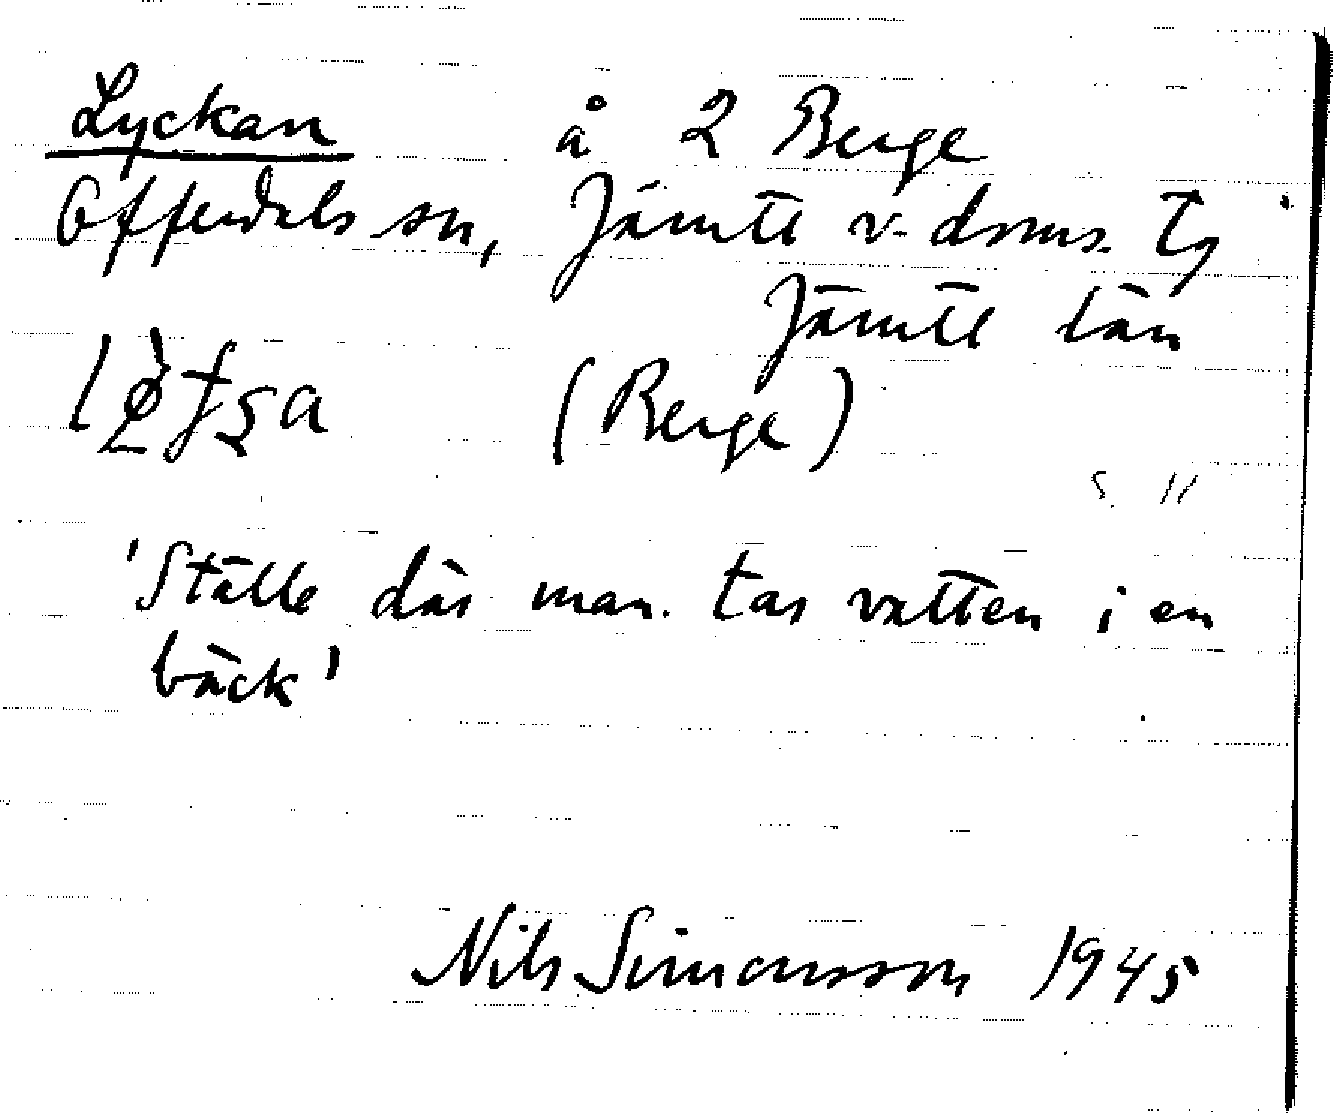 Lyckan å 2 Berge
Offerdals sn, Jämtl v. doms. Tg
Jämtl län
(Berge)
S. 11
'Ställe där man tar vatten i en
bäck'
Nils Simonsson 1945